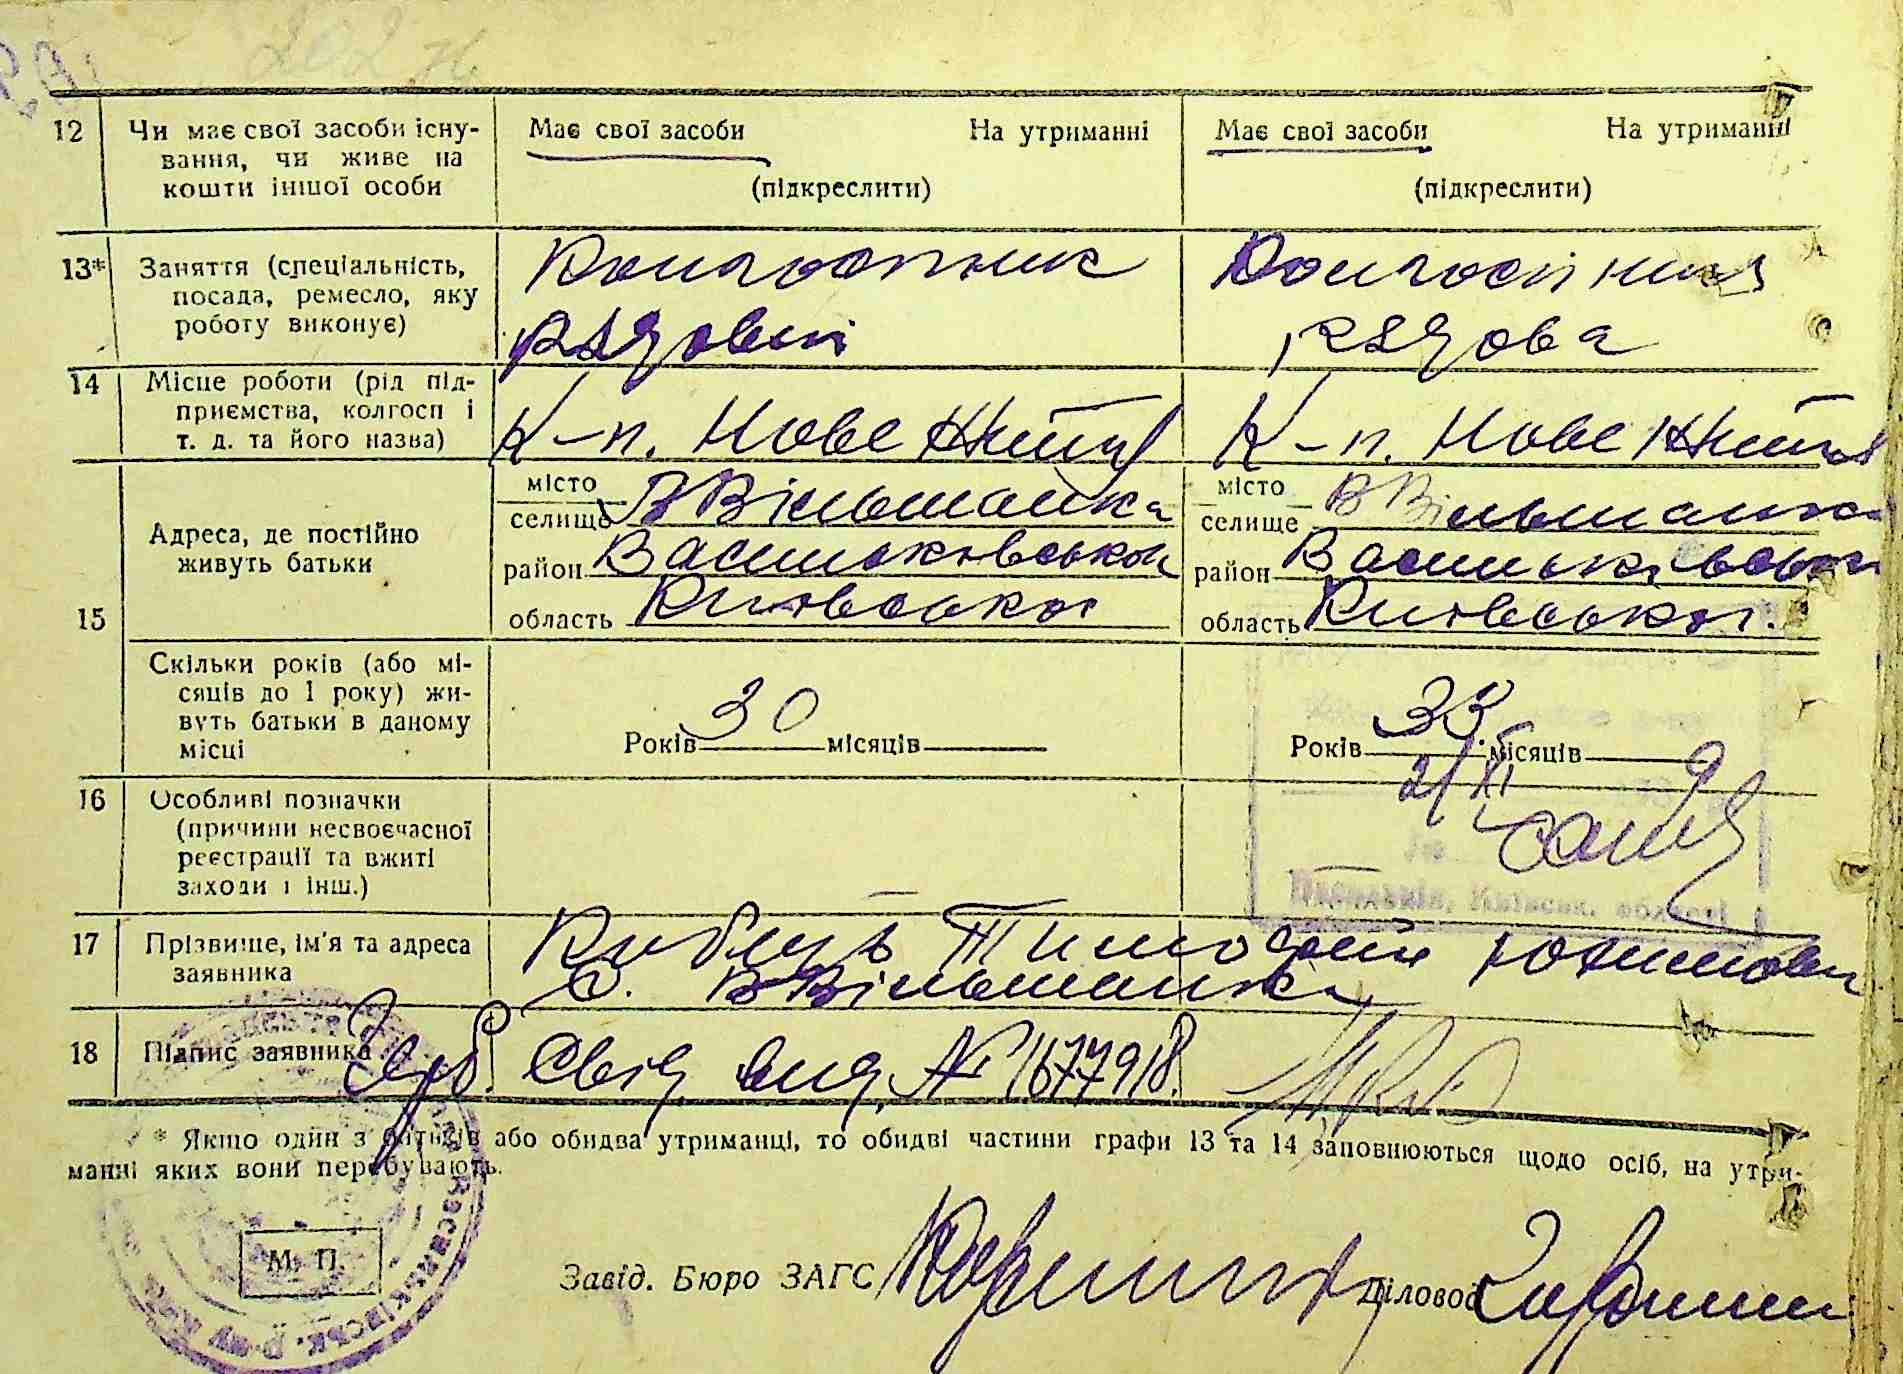 202
12 Чи має свої засоби існу-
вання, чи живе на
кошти іншої особи
Має свої засоби На утриманні
(підкреслити)
Має свої засоби На утриманні
(підкреслити)
13* Заняття (спеціальність,
посада, ремесло, яку
роботу виконує)
Колгоспник
рядовий
Колгоспниця
рядова
14 Місце роботи (рід під-
приємства, колгосп і
т. д. та його назва)
К-п. Нове Життя
К-п. Нове Життя
15 Адреса, де постійно
живуть батьки
місто
селище В Вільшанка
район Васильковської
область Київської
місто
селище В Вільшанка
район Васильківської
область Київської
Скільки років (або мі-
сяців до 1 року) жи-
вуть батьки в даному
місці
Років 30 місяців
Років 33 місяців
21/XI
16 Особливі позначки
(причини несвоєчасної
реєстрації та вжиті
заходи і інш.)
Київськ. області
17 Прізвище, ім'я та адреса
заявника
Тимофій Юхимович
с. В Вільшанка
18 Підпис заявника
Свід. вид. № 1677918.
* Якщо один з батьків або обидва утриманці, то обидві частини графи 13 та 14 заповнюються щодо осіб, на утри-
манні яких вони перебувають.
М. П.
Васильківськ. р-ну
Завід. Бюро ЗАГС
Діловод